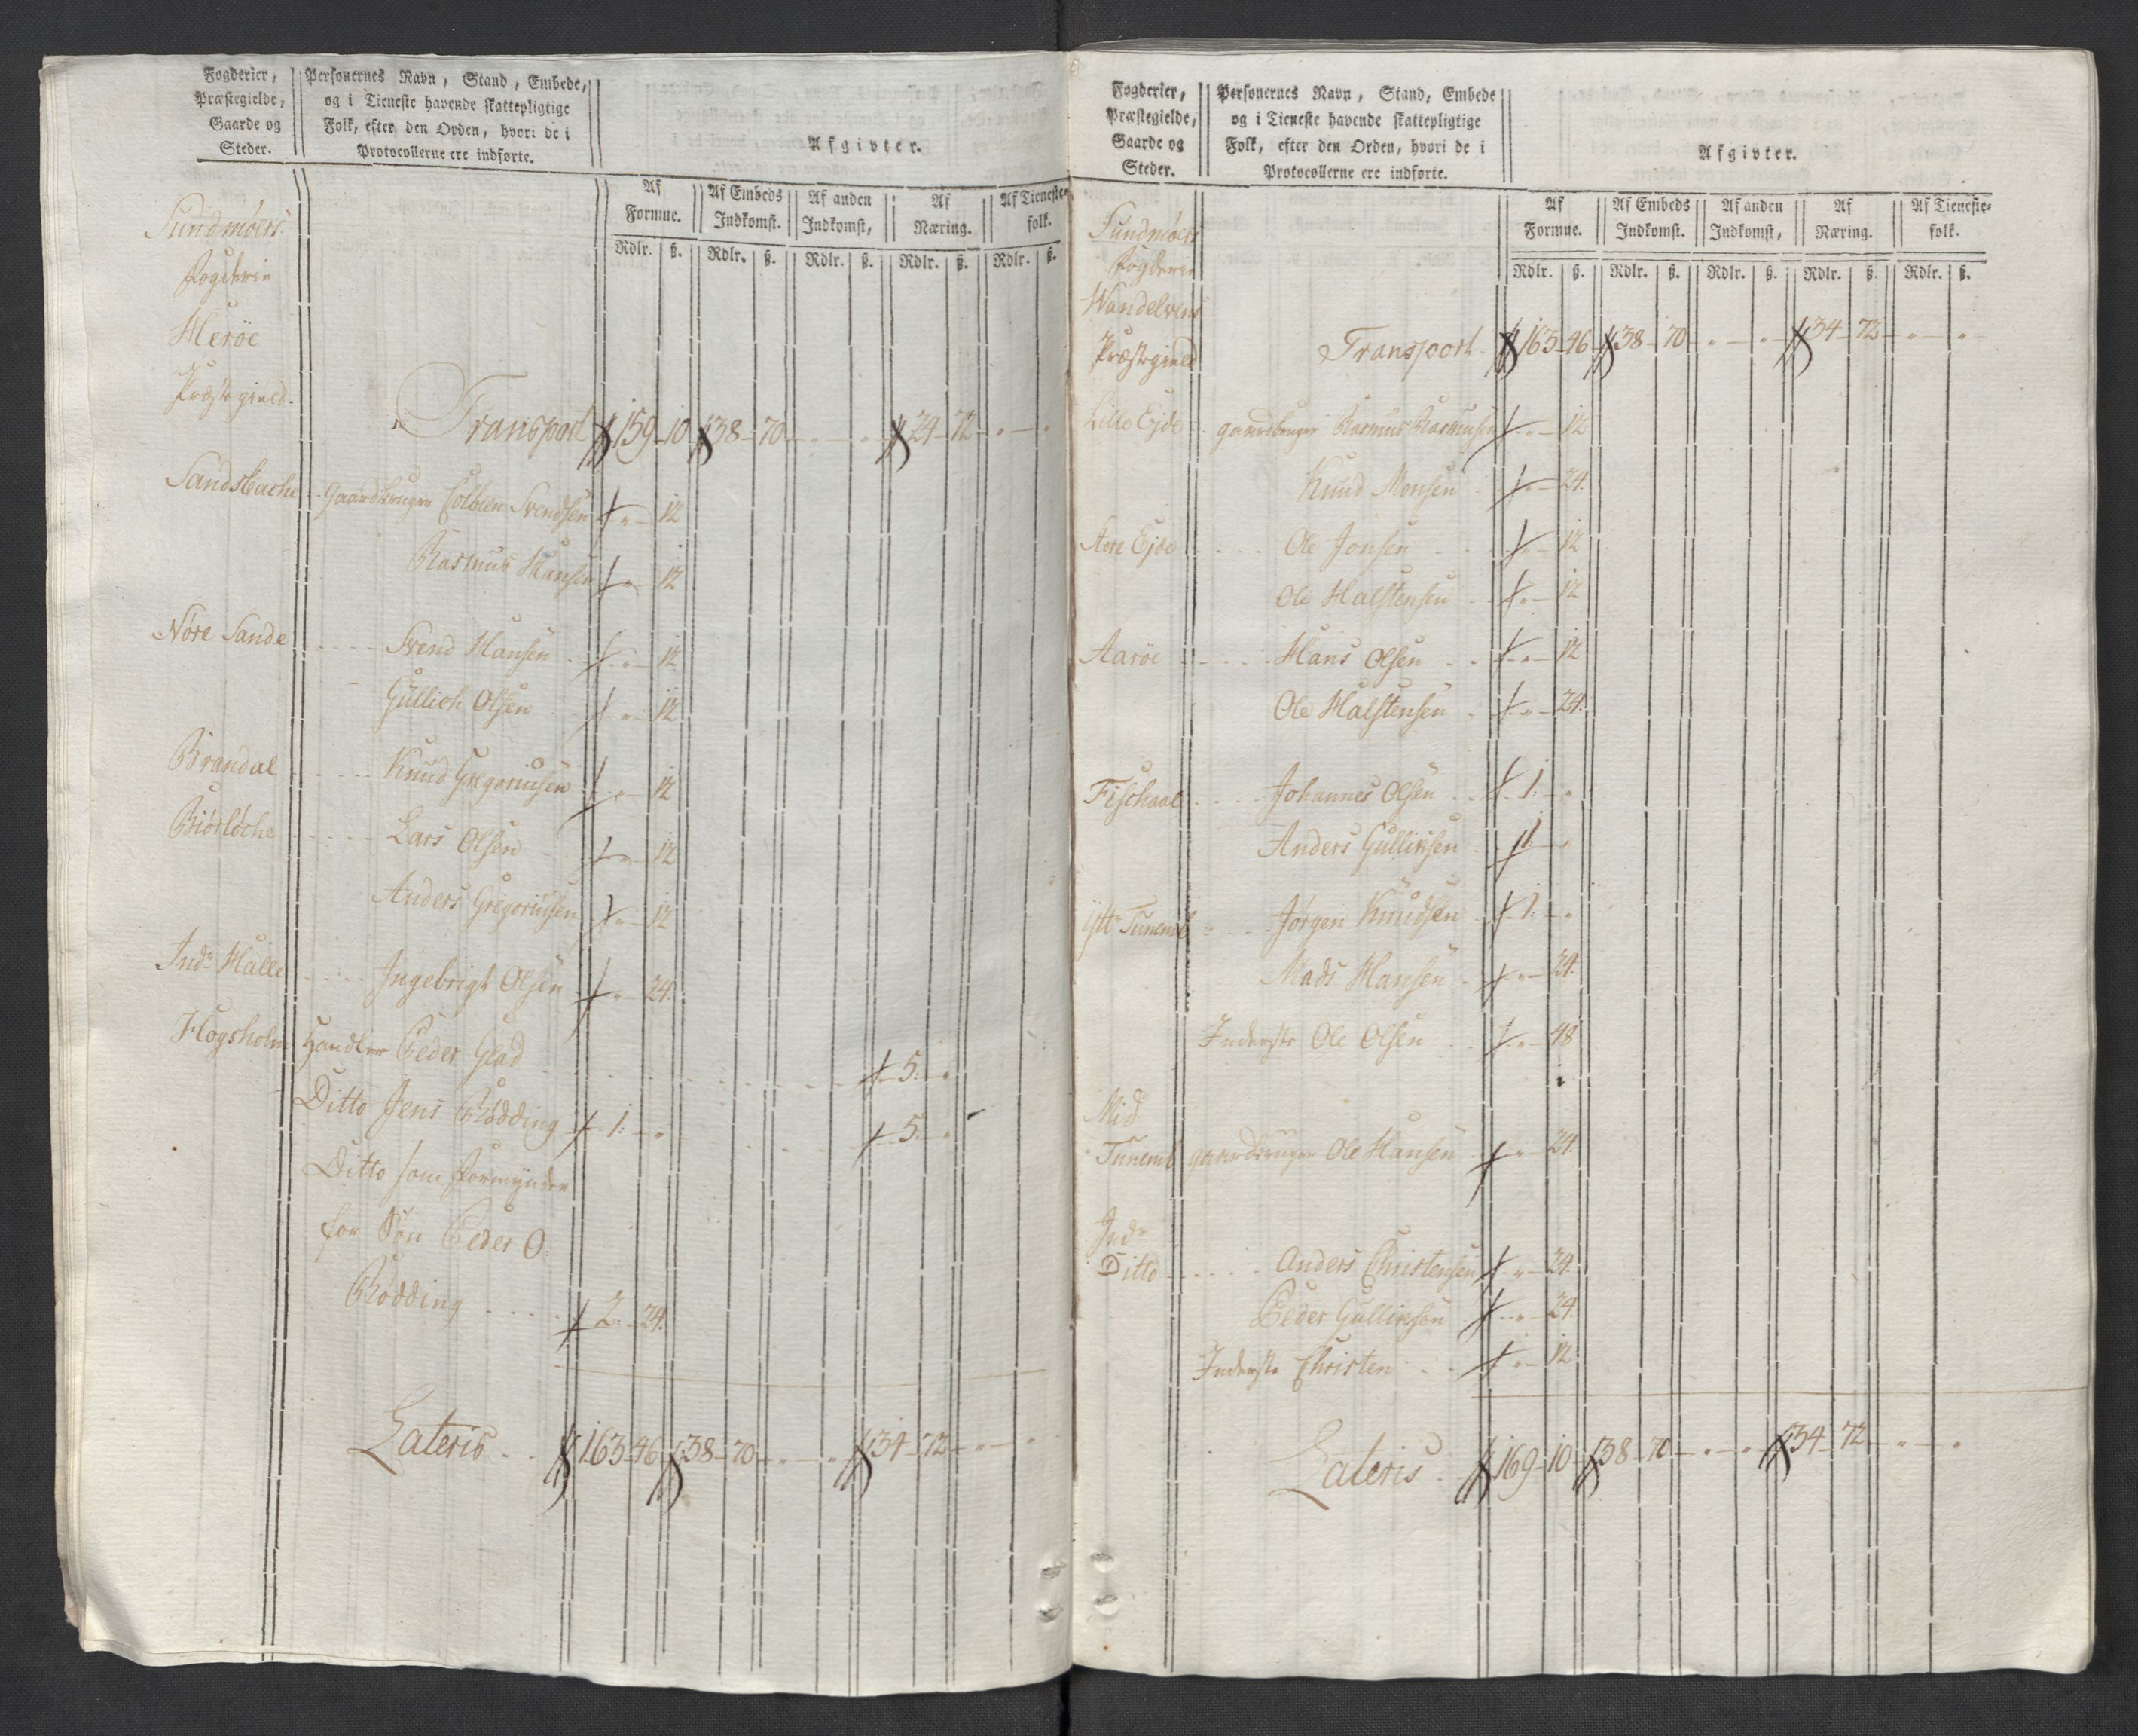 Fogderier, Præstegielde, Gaarde og Steder.
Personernes Navn, Stand, Embede, og i Tieneste havende skattepligtige Folk, efter den Orden, hvori de i Protocollerne ere indførte.
Afgivter.
Af Formue. Af Embeds Indkomst. Af anden Indkomst, Af Næring. Af Tieneste-folk.
Rdlr. ß. Rdlr. ß. Rdlr. ß. Rdlr. ß. Rdlr. ß.
Sundmøers
Fogderie
Herøe
Præstegield.
Transport 159 - 10 38 - 70 - " - " 24 - 72 - " - "
Sandsbache - Gaardbruger Colblen Svendsen " - 12
Rasmus Hansen " - 12
Nøre Sande - - - - Svend Hansen " - 12
Gullich Olsen " - 12
Brandal - - - - Knud Gregoriusen " - 12
Biørløche - - - - Lars Olsen " - 12
Anders Gregoriusen " - 12
Indr Halle - - - Ingebrigt Olsen " - 24.
Flogsholm Handler Peder Glad 5: - "
Ditto Jens Rødding 1: - " 5: - "
Ditto som Formynder
for Søn Peder O:
Rødding - - - - 2: - 24.
Lateris - - 163 - 46 38 - 70 - " - " 34 - 72 - " - "
Fogderier, Præstegielde, Gaarde og Steder.
Personernes Navn, Stand, Embede og i Tieneste havende skattepligtige Folk, efter den Orden, hvori de i Protocollerne ere indførte.
Afgivter.
Af Formue. Af Embeds Indkomst. Af anden Indkomst, Af Næring. Af Tieneste-folk.
Rdlr. ß. Rdlr. ß. Rdlr. ß. Rdlr. ß. Rdlr. ß.
Sundmøers
Fogderie
Wandelvens
Præstegield
Transport - 163 - 46 38 - 70 - " - " 34 - 72 - " - "
Lille Ejde - gaardbruger Rasmus Rasmusen " - 12
Knud Monsen " - 24.
Store Ejde - - - Ole Jonsen - - " - 12
Ole Halstensen - " - 12
Aarøe - - - - Hans Olsen - - " - 12
Ole Halstensen - " - 24.
Fischaal - - - - Johannes Olsen - - 1: - "
Anders Gullichsen - 1: - "
Ytr Tunemb - - - Jørgen Knudsen - 1: - "
Mads Hansen - " - 24.
Inderste Ole Olsen - - " - 48
Mid
Tunemb gaardbruger Ole Hansen " - 24.
Indr
Ditto - - - - - Anders Christensen " - 24.
Peder Gullichsen " - 24.
Inderste Christen - - " - 12
Lateris - 169 - 10 38 - 70 - " - " 34 - 72 - " - "